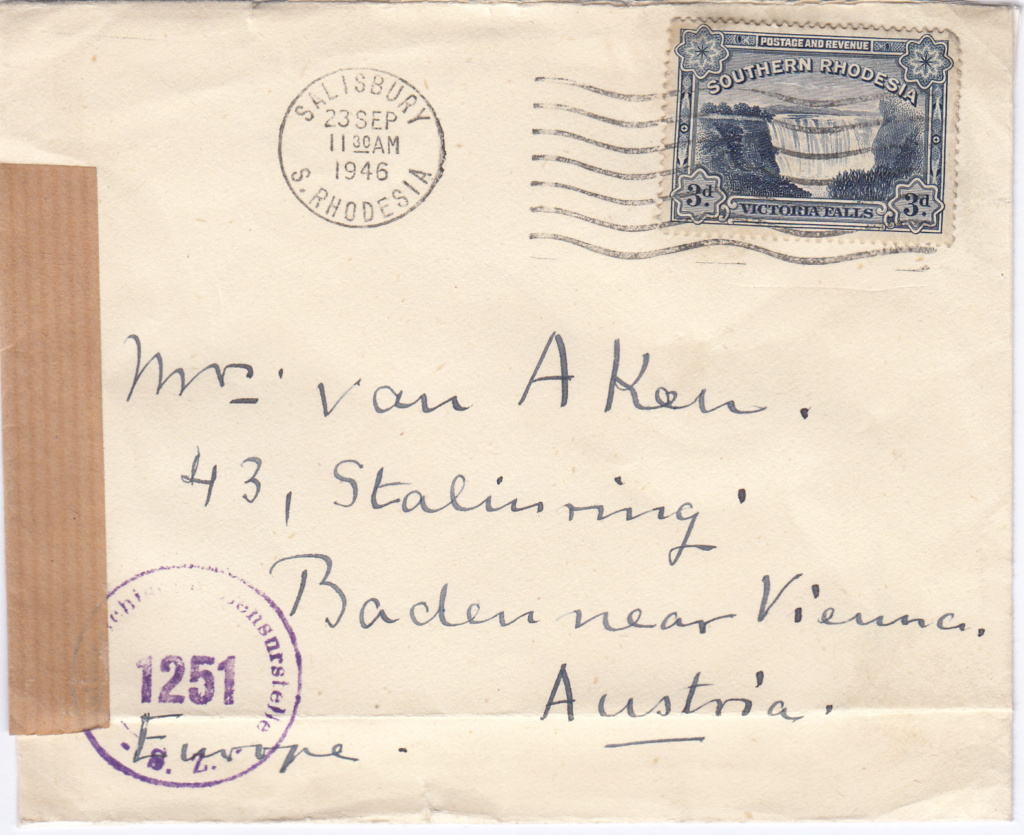 SALISBURY
23 SEP
11 30 AM
1946
S. RHODESIA
POSTAGE AND REVENUE
SOUTHERN RHODESIA
3d
VICTORIA FALLS
3d
Mrs. van Aken.
43, Stalinring
Baden near Vienna.
Austria.
Europe.
1251